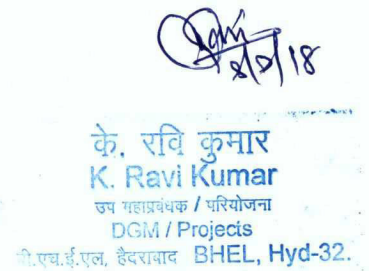 के. रवि कुमार
K. Ravi Kumar
उप महाप्रबंधक / परियोजना
DGM / Projects
बी.एच.ई.एल, हैदराबाद BHEL, Hyd-32.